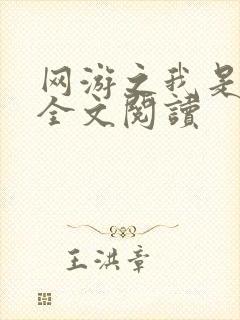 网游之我是
全文阅讀
王洪章